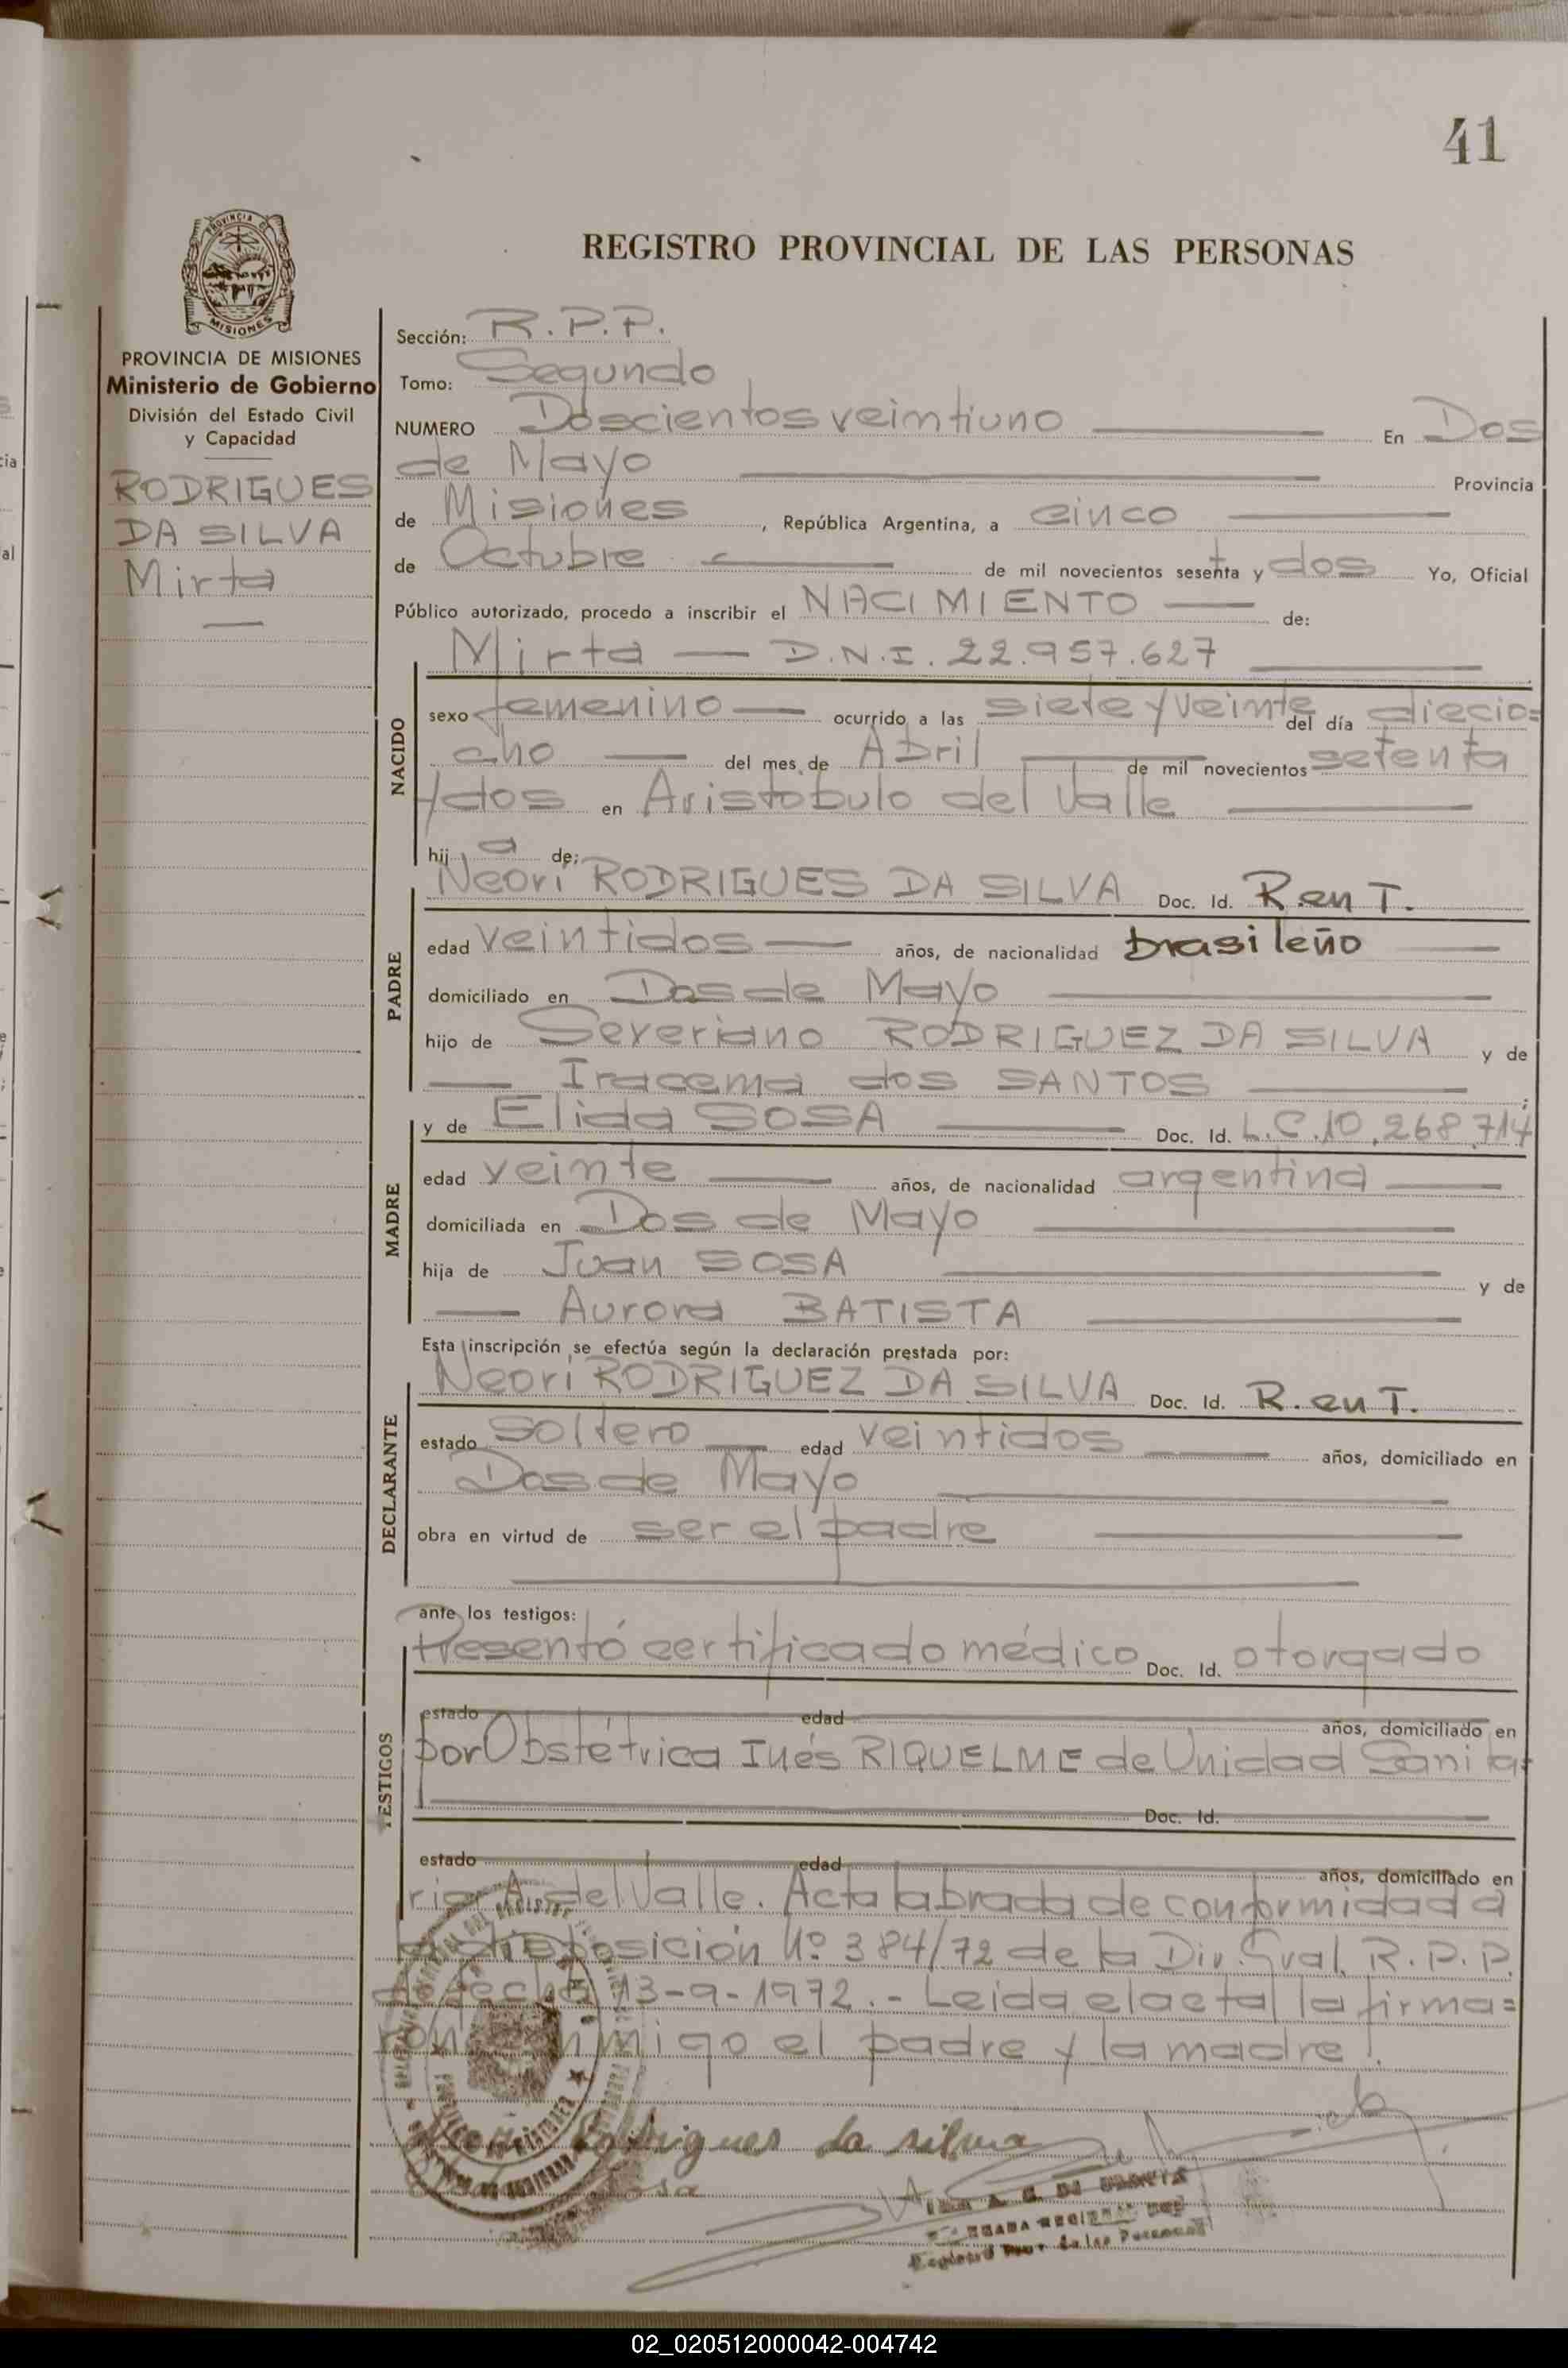 41
REGISTRO PROVINCIAL DE LAS PERSONAS
PROVINCIA DE MISIONES
Ministerio de Gobierno
División del Estado Civil
y Capacidad
RODRIGUES
DA SILVA
Mirta
Sección: R.P.P.
Tomo: Segundo
NUMERO Doscientos veintiuno En Dos
de Mayo Provincia
de Misiones, República Argentina, a cinco
de Octubre de mil novecientos sesenta y dos Yo, Oficial
Público autorizado, procedo a inscribir el NACIMIENTO de:
Mirta — D.N.I. 22.957.627
NACIDO
sexo femenino ocurrido a las siete y veinte del día diecio=
cho del mes de Abril de mil novecientos setenta
y dos en Aristobulo del Valle
hija de:
Neori RODRIGUES DA SILVA Doc. Id. R.en T.
PADRE
edad veintidos años, de nacionalidad brasileño
domiciliado en Dos de Mayo
hijo de Severiano RODRIGUEZ DA SILVA y de
Iracema dos SANTOS
y de Elida SOSA Doc. Id. L.C.10.268.714
MADRE
edad veinte años, de nacionalidad argentina
domiciliada en Dos de Mayo
hija de Juan SOSA y de
Aurora BATISTA
Esta inscripción se efectúa según la declaración prestada por:
Neori RODRIGUEZ DA SILVA Doc. Id. R. en T.
DECLARANTE
estado soltero edad veintidos años, domiciliado en
Dos de Mayo
obra en virtud de ser el padre
ante los testigos:
Presentó certificado médico Doc. Id. otorgado
TESTIGOS
estado edad años, domiciliado en
por Obstétrica Inés RIQUELME de Unidad Sanita=
Doc. Id.
estado edad años, domiciliado en
ria A. del Valle. Acta labrada de conformidad a
la disposición Nº 384/72 de la Div. Gral. R.P.P.
de fecha 13-9-1972.- Leida el acta, la firma=
ron conmigo el padre y la madre.
Neori Rodrigues da silva
Sosa
Registro Prov. de las Personas
02_020512000042-004742